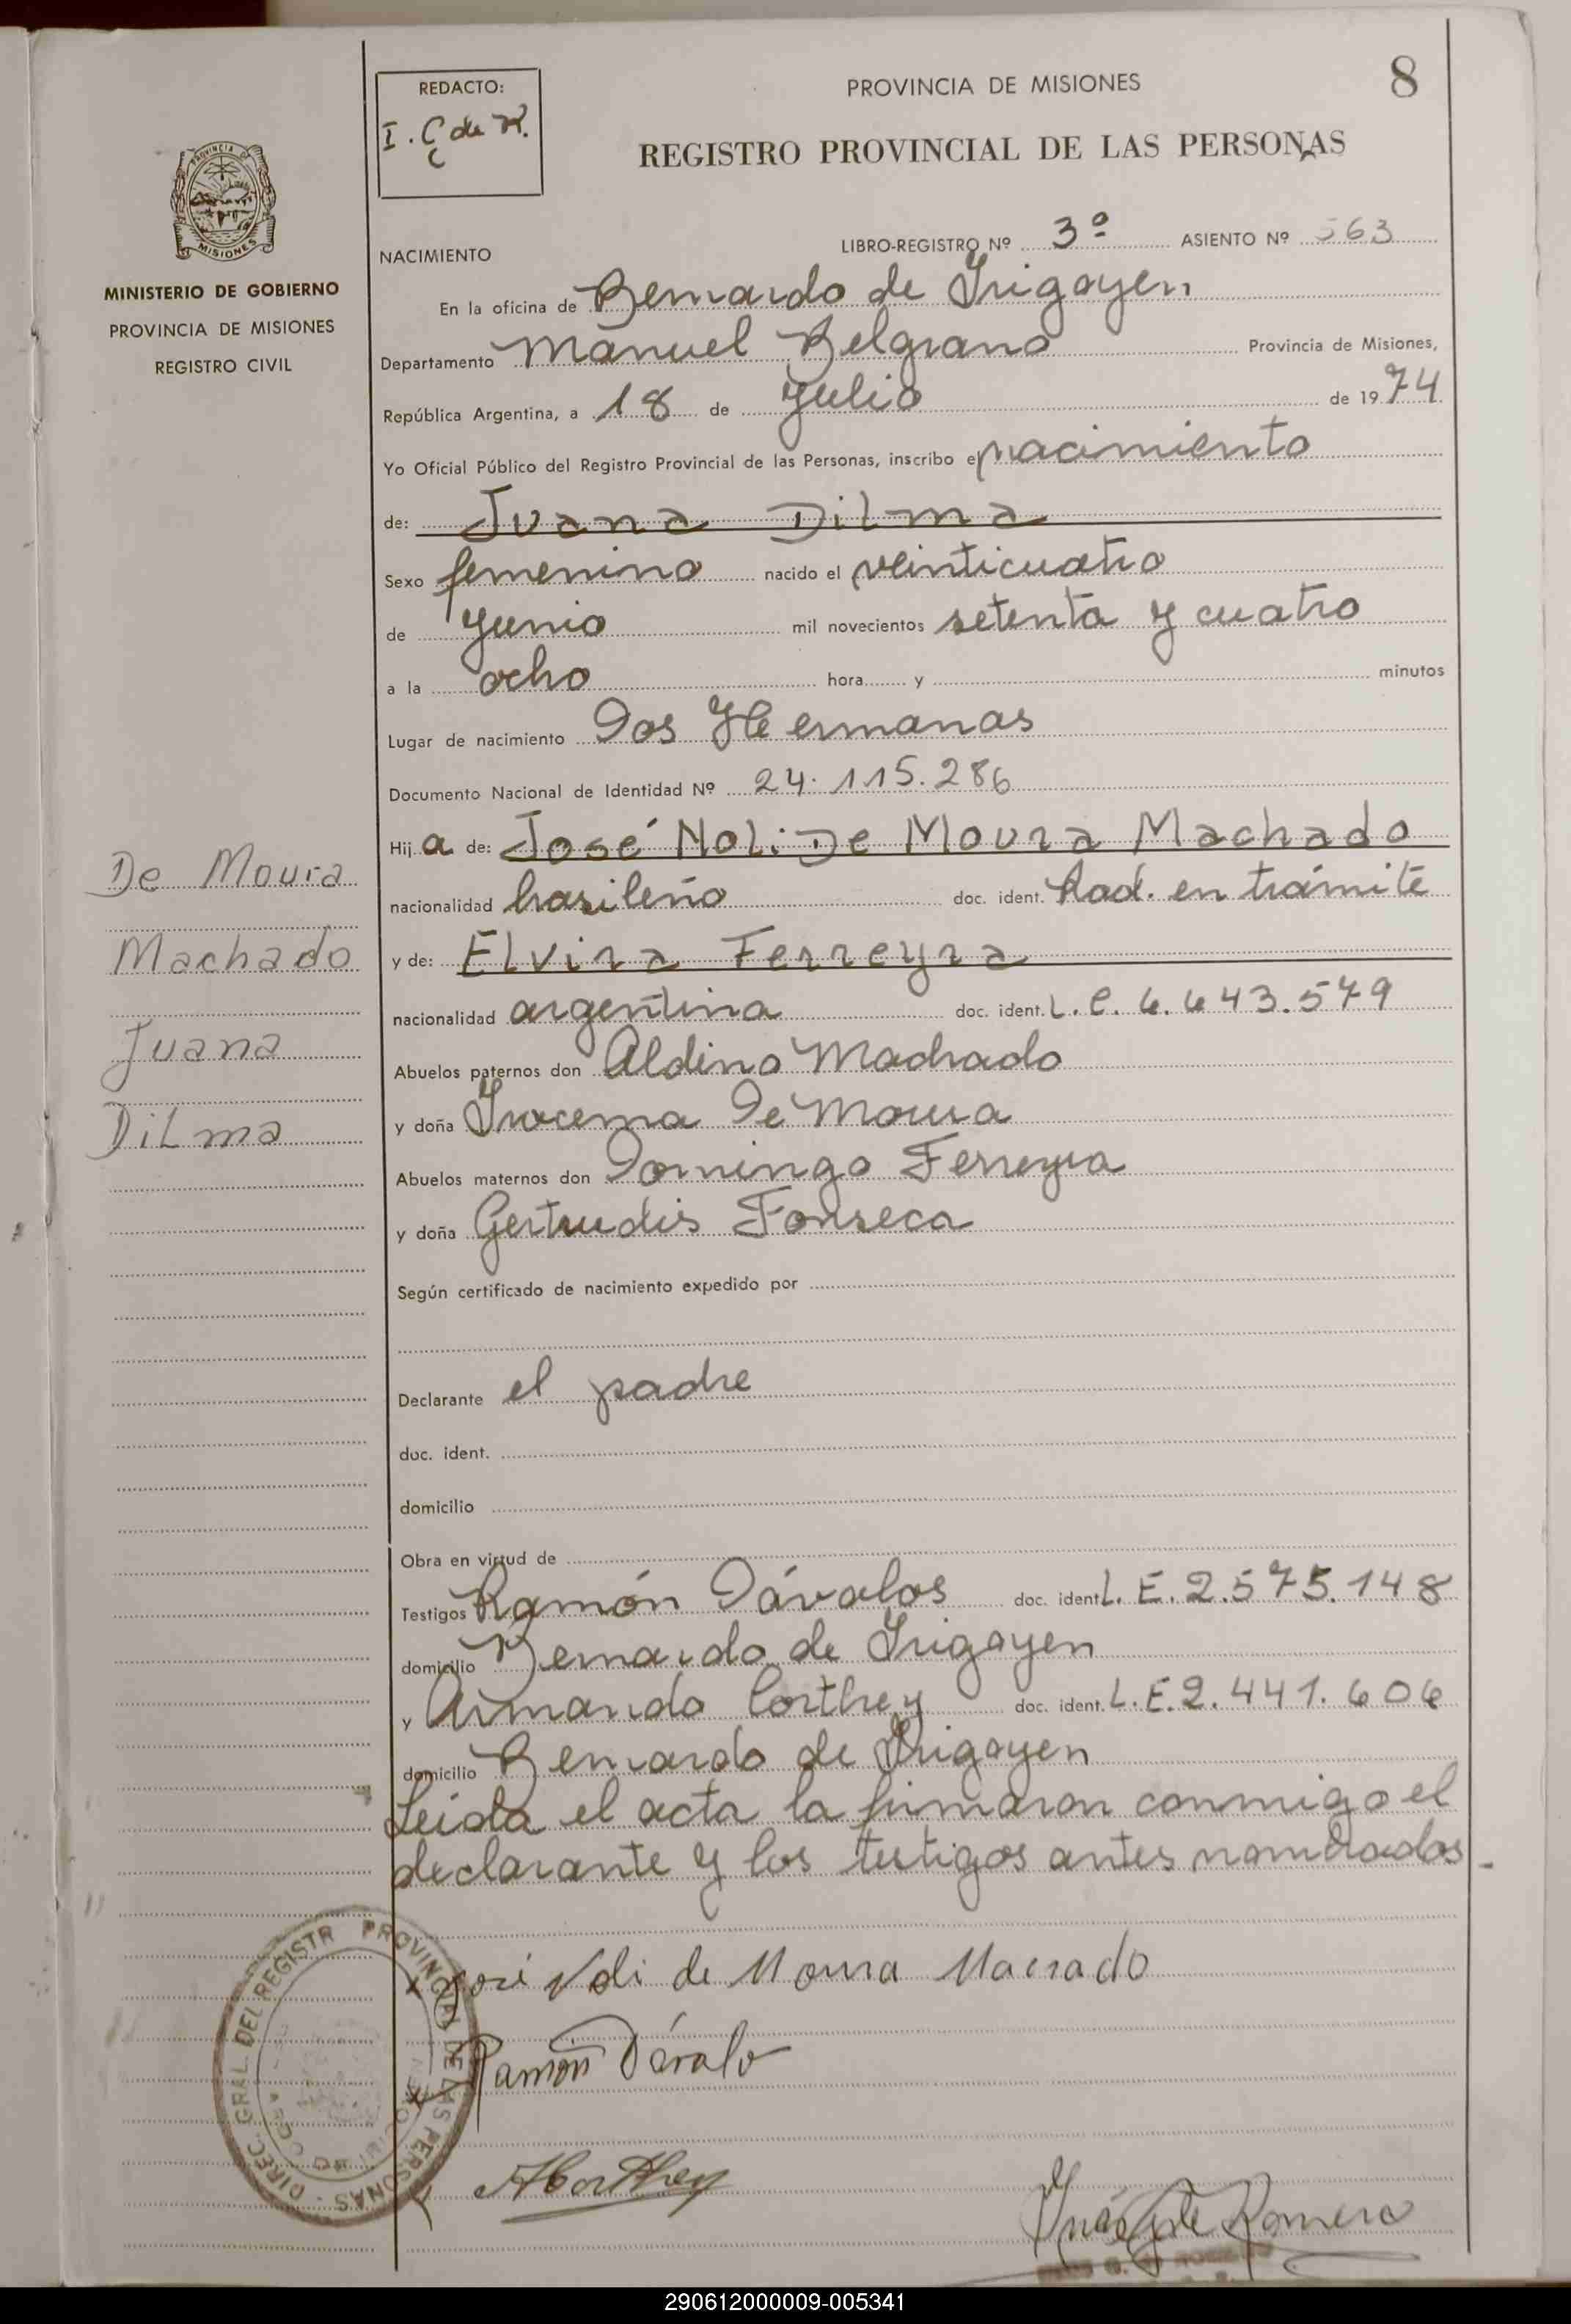 8
REDACTO:
I. C de R.
PROVINCIA DE MISIONES
REGISTRO PROVINCIAL DE LAS PERSONAS
PROVINCIA DE
MISIONES
MINISTERIO DE GOBIERNO
PROVINCIA DE MISIONES
REGISTRO CIVIL
NACIMIENTO
LIBRO-REGISTRO Nº 3º ASIENTO Nº 563
En la oficina de Bernardo de Irigoyen
Departamento Manuel Belgrano Provincia de Misiones,
República Argentina, a 18 de Julio de 1974
Yo Oficial Público del Registro Provincial de las Personas, inscribo el nacimiento
de: Juana Dilma
Sexo femenino nacido el veinticuatro
de Junio mil novecientos setenta y cuatro
a la ocho hora y minutos
Lugar de nacimiento Dos Hermanas
Documento Nacional de Identidad Nº 24.115.286
Hija de: José Noli De Moura Machado
nacionalidad brasileño doc. ident. Rad. en trámite
y de: Elvira Ferreyra
nacionalidad argentina doc. ident. L.C. 6.643.579
Abuelos paternos don Aldino Machado
y doña Irocema De Moura
Abuelos maternos don Domingo Ferreyra
y doña Gertrudis Fonseca
Según certificado de nacimiento expedido por
Declarante el padre
doc. ident.
domicilio
Obra en virtud de
Testigos Ramón Dávalos doc. ident L.E. 2.575.148
domicilio Bernardo de Irigoyen
y Armando Corthey doc. ident. L.E. 2.441.606
domicilio Bernardo de Irigoyen
Leída el acta la firmaron conmigo el
declarante y los testigos antes nombrados.
De Moura
Machado
Juana
Dilma
José Noli de Moura Macrado
Ramón Dávalo
ACorthey
Inés G de Romero
DIREC. GRAL. DEL REGISTR PROVINCIAL DE LAS PERSONAS
290612000009-005341